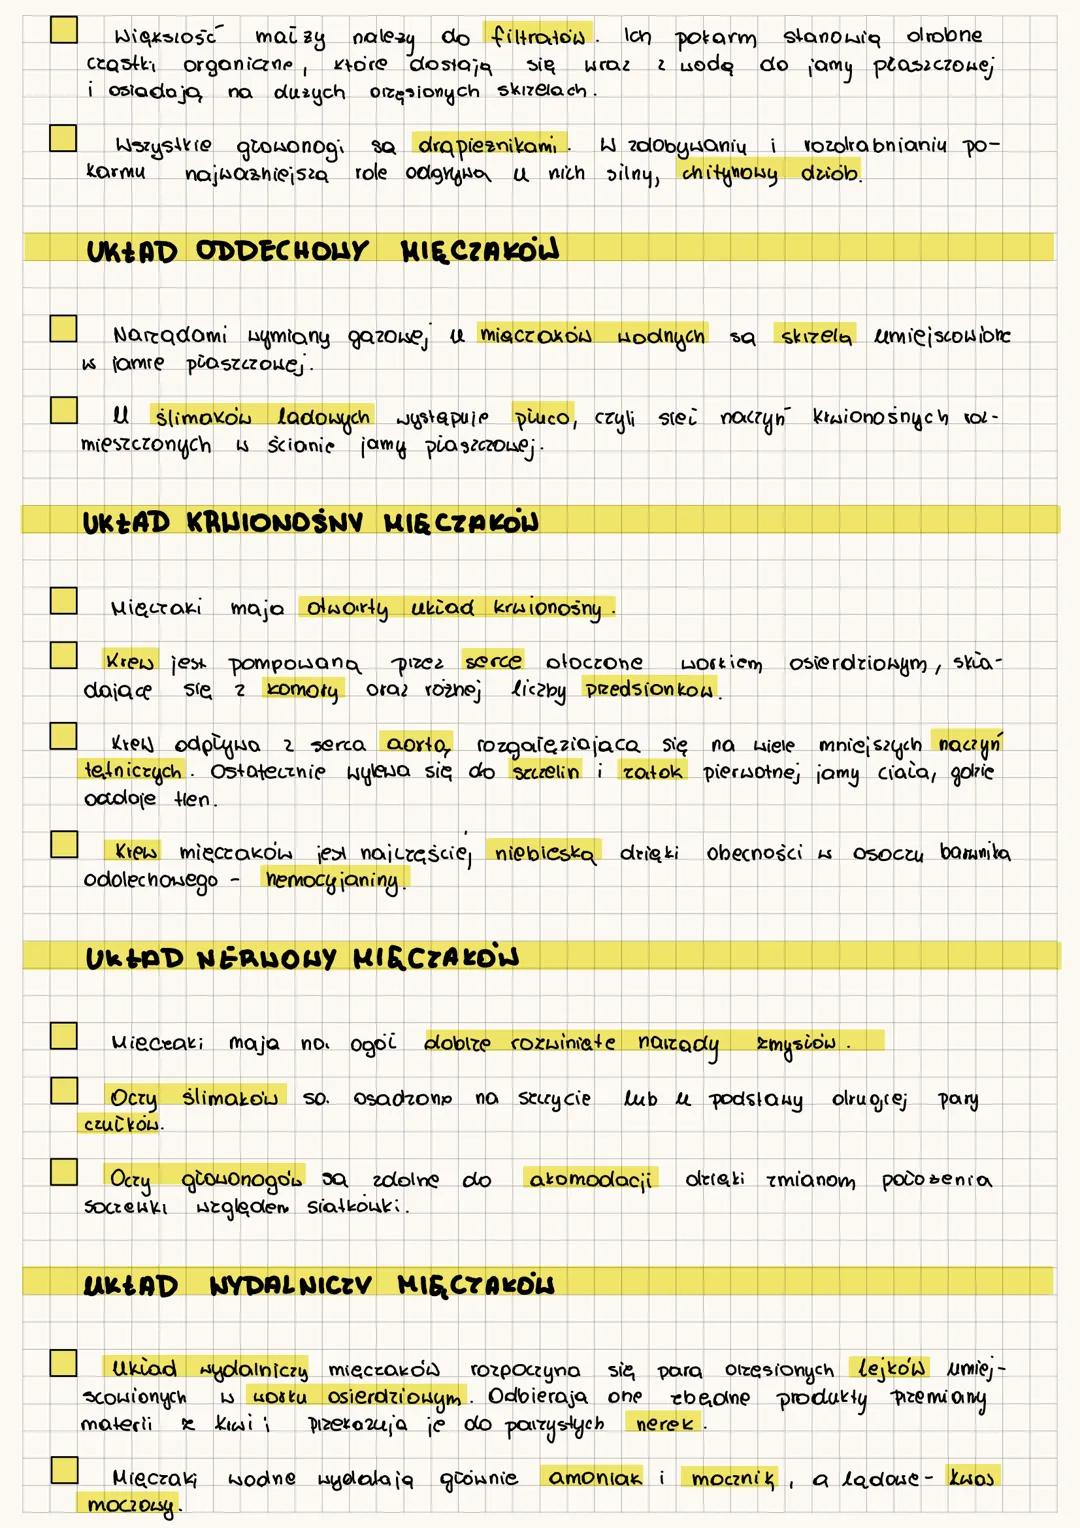 Większość małży należy do filtratów. Ich pokarm stanowią drobne
cząstki organiczne, które dostają się wraz z wodą do jamy płaszczowej
i osiadają na dużych orzęsionych skrzelach.
Wszystkie głowonogi są drapieżnikami. W zdobywaniu i rozdrabnianiu po-
karmu najważniejszą role odgrywa u nich silny, chitynowy dziób.
UKŁAD ODDECHOWY MIĘCZAKÓW
Narządami wymiany gazowej u mięczaków wodnych są skrzela umiejscowione
w jamie płaszczowej.
U ślimaków lądowych występuje płuco, czyli sieć naczyń krwionośnych roz-
mieszczonych w ścianie jamy płaszczowej.
UKŁAD KRWIONOŚNY MIĘCZAKÓW
Mięczaki maja otwarty układ krwionośny.
Krew jest pompowana przez serce otoczone workiem osierdziowym, skła-
dające się z komory oraz różnej liczby przedsionków.
Krew odpływa z serca aortą, rozgałęziająca się na wiele mniejszych naczyń
tętniczych. Ostatecznie wylewa się do szczelin i zatok pierwotnej jamy ciała, gdzie
oddaje tlen.
Krew mięczaków jest najczęściej niebieska dzięki obecności w osoczu barwnika
oddechowego - hemocyjaniny.
UKŁAD NERWOWY MIĘCZAKÓW
Mięczaki maja na ogół dobrze rozwinięte narządy zmysłów.
Oczy ślimaków są osadzone na szczycie lub u podstawy drugiej pary
czułków.
Oczy głowonogów są zdolne do akomodacji dzięki zmianom położenia
soczewki względem siatkówki.
UKŁAD WYDALNICZY MIĘCZAKÓW
Układ wydalniczy mięczaków rozpoczyna się parą orzęsionych lejków umiej-
scowionych w worku osierdziowym. Odbierają one zbędne produkty przemiany
materii z krwi i przekazują je do parzystych nerek.
Mięczaki wodne wydalają głównie amoniak i mocznik, a lądowe - kwas
moczowy.